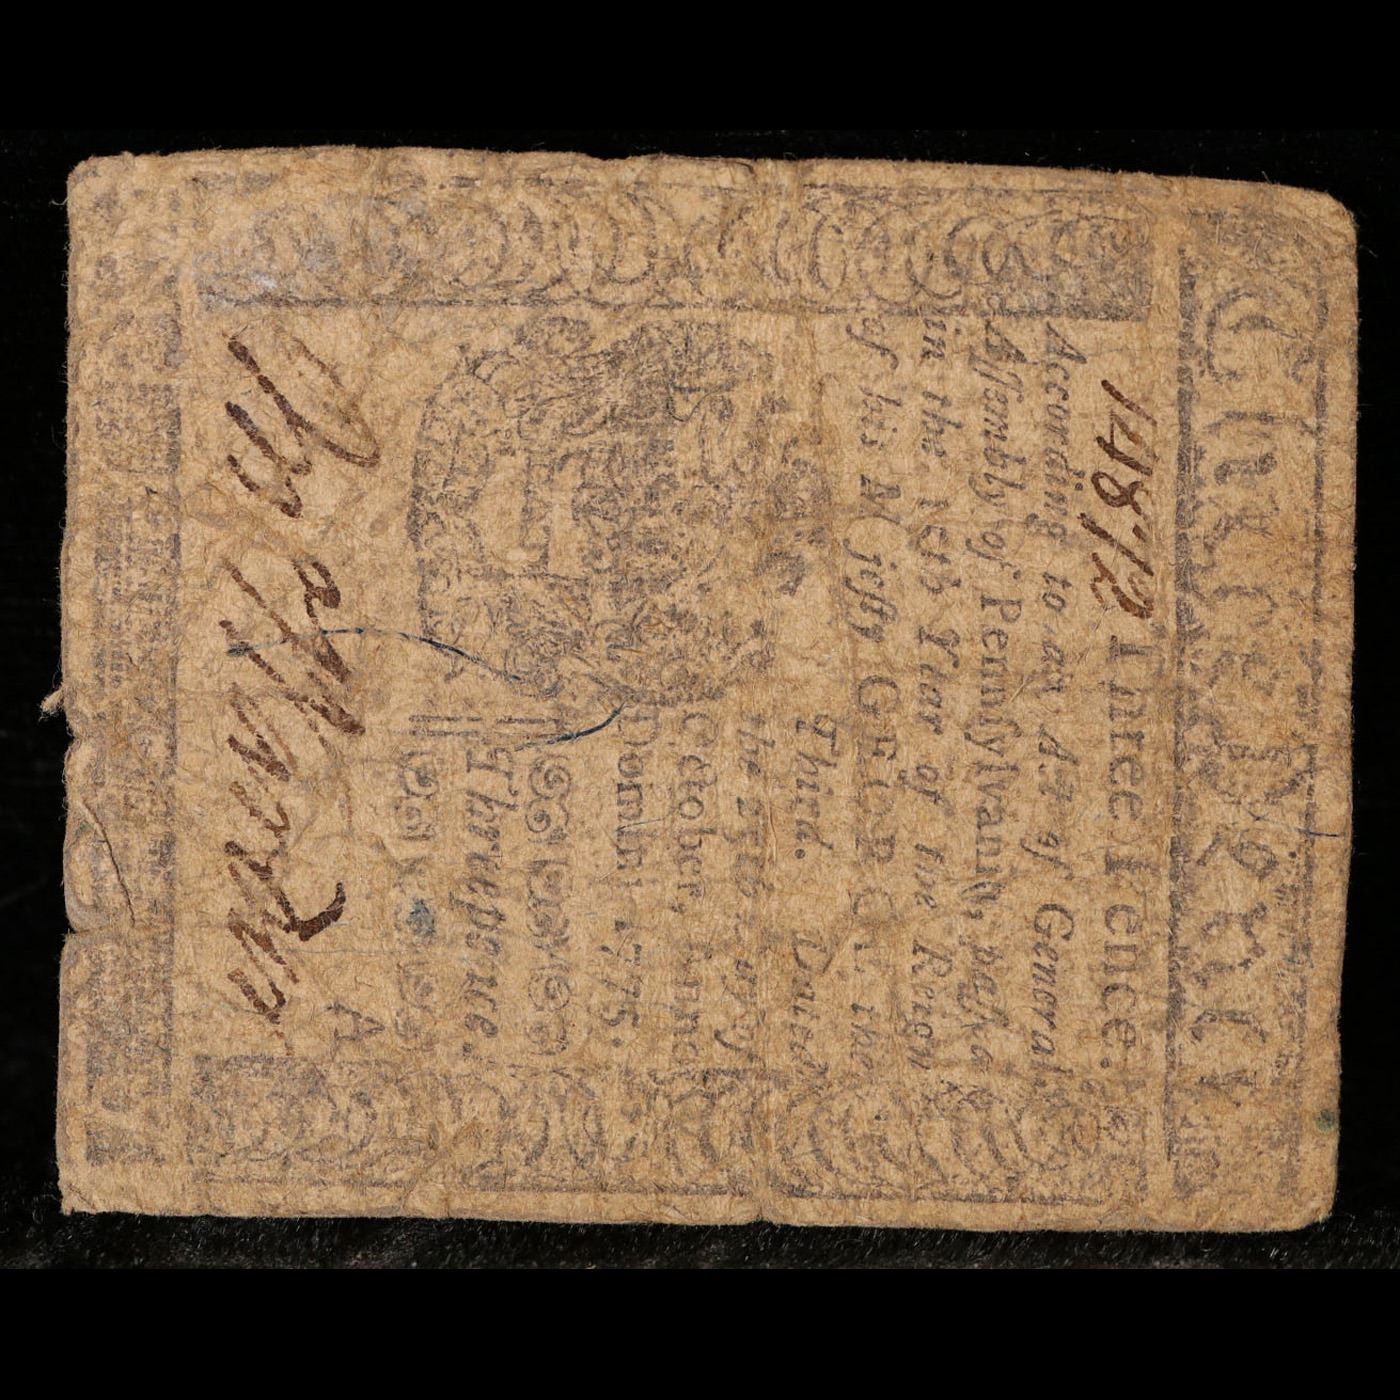 Three Pence.
14872 Three Pence.
According to an Act of General
Assembly of Pennsylvania, passed
in the 15th Year of the Reign
of his Majesty GEORGE the
Third. Dated
the 25th Day of
October, Anno
Domini 1775.
Threepence.
A